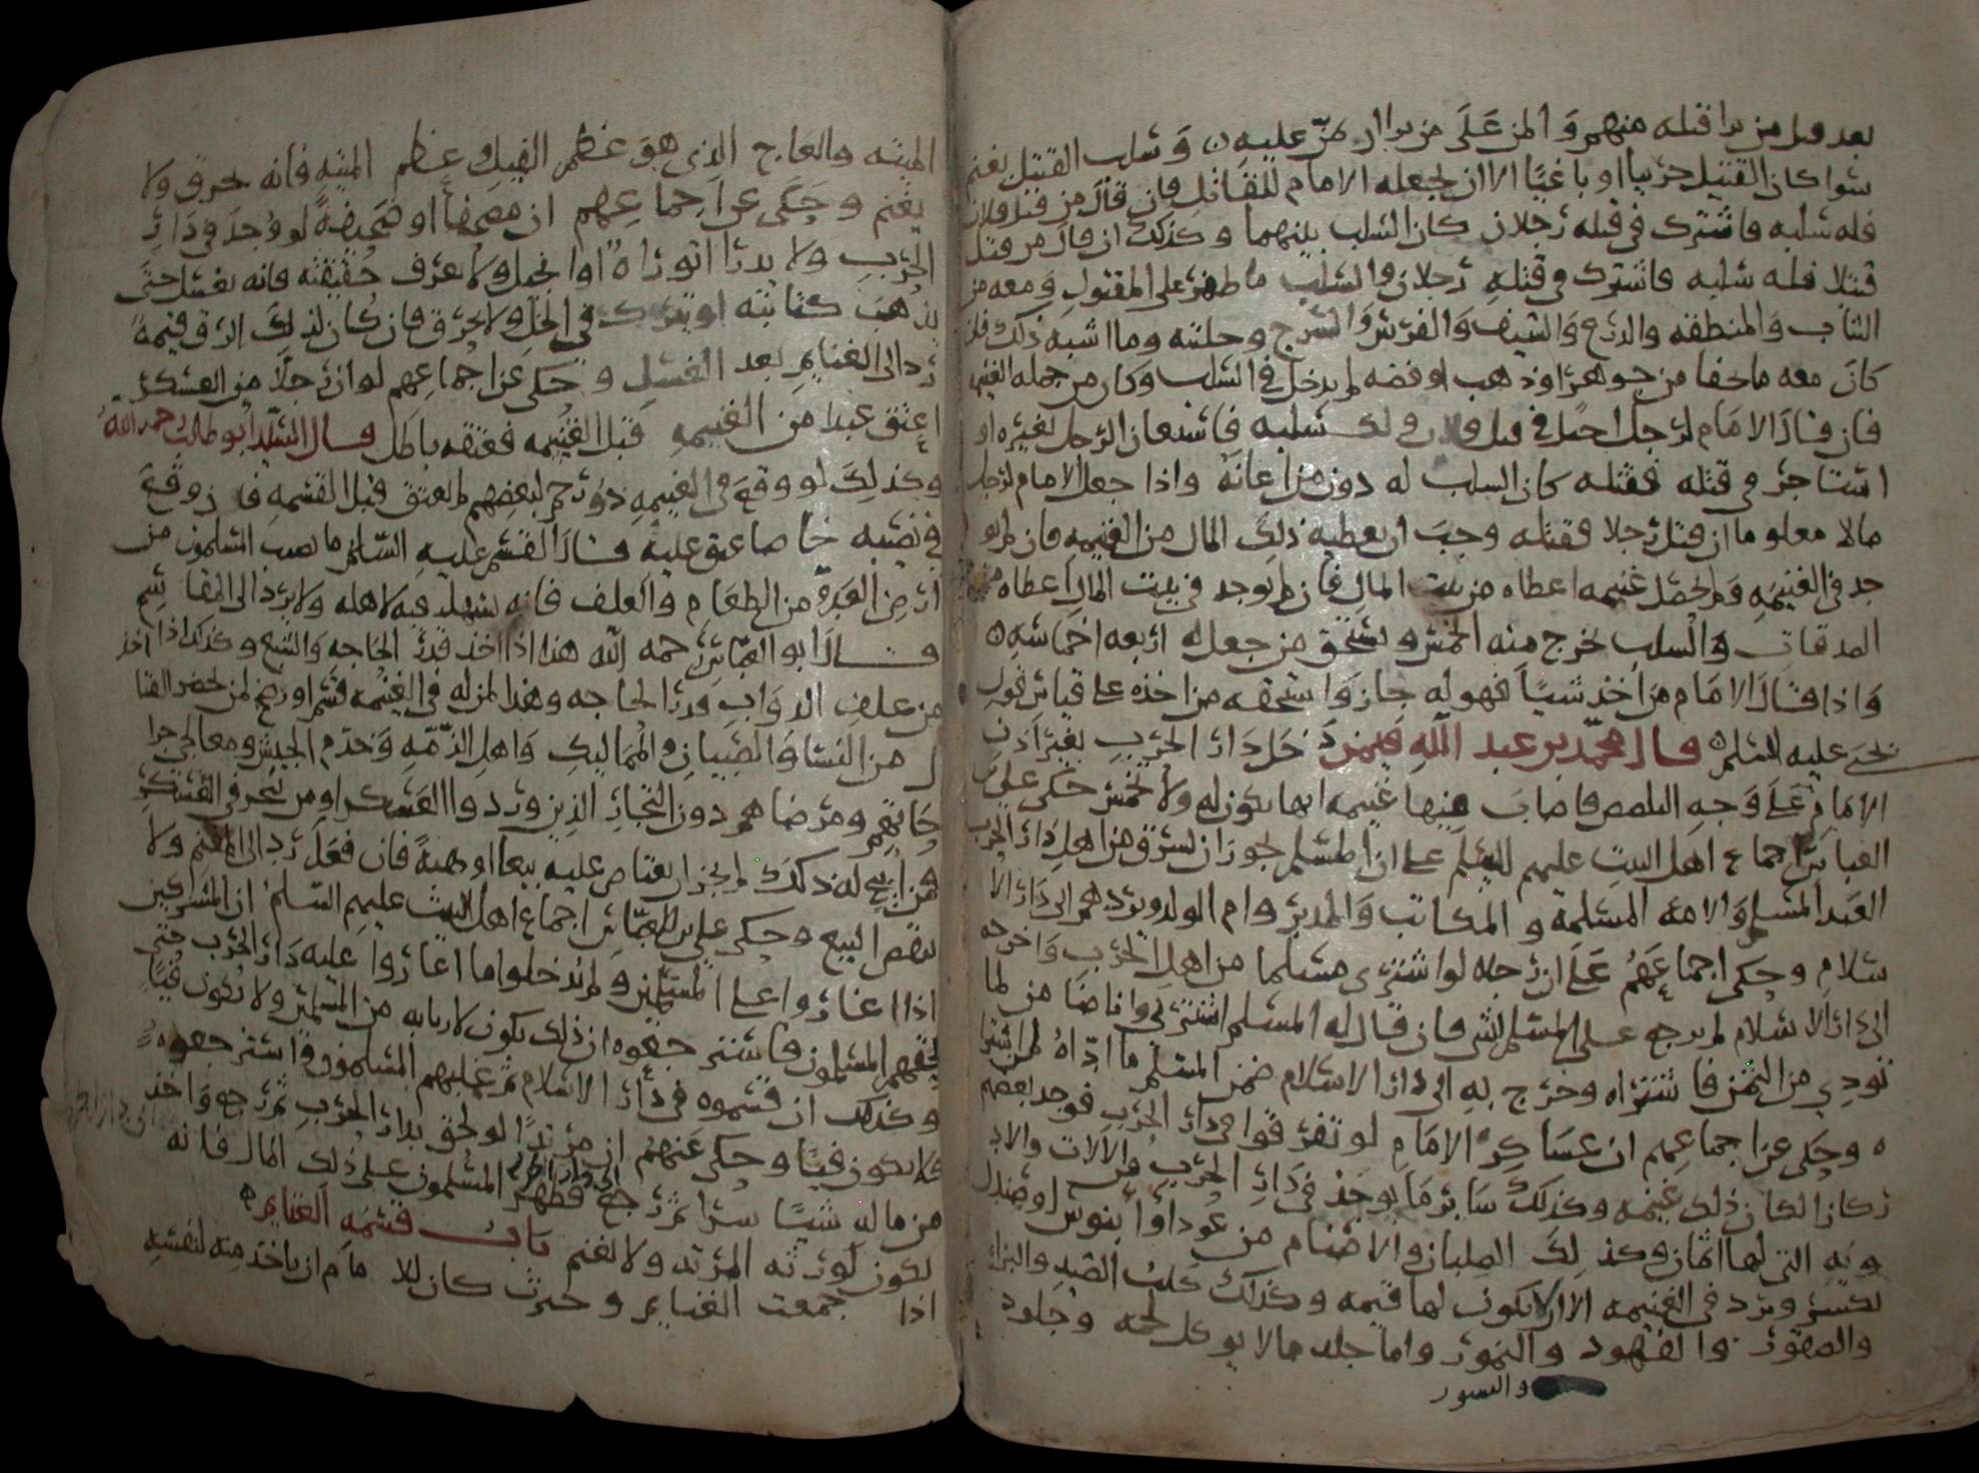 بعد قبل من برا قتله منهم وَالمن عَلَى من يرا ان يمنّ عليه ٥ وَسلب القتيل يغنم
سوا كان القتيل حربيا او باغيًا الا ان يجعله الامام للقاتل فان قال من قتل فلان
فله سلبه فاشترك فى قتله رجلان كان السلب بينهما وكذلك ان قال من قتل
قتيلا فله سلبه فاشترك فى قتله رجلان والسلب ما ظهر على المقتول وَمعه من
الثياب وَالمنطقه والدرع وَالسيف وَالفرس وَالسرج وحليته وما اشبه ذلك فان
كانَ معه ما خفا من جوهر او ذهب او فضه لم يدخل فى السلب وكان من جمله الغنيمه
فان قال الامَام لرجل اجتهد فى قتل فلان ولك سلبه فاستعان الرجل بغيره او
استاجر فى قتله فقتله كان السلب له دون من اعانه واذا جعل الامام لرجل
مالا معلوما ان قتل رجلا فقتله وجبَ ان يعطيه ذلك المال من الغنيمه فان لم يو
جد فى الغنيمَهِ وَلم تحصل غنيمه اعطاه من بيت المال فان لم يوجد فى بيت المال اعطاه من
الصدقات وَالسلب يخرج منه الخمس ويستحق من جعل له اربعه اخماسه ٥
وَاذا قالَ الامَام من اخذ شيًا فهو له جاز وَاستحقه من اخذه على قياس قول
يحيى عليه السلم ٥ قال محمّد بن عبد اللّه فيمن دَخل دَار الحرب بغير اذن
الامَام عَلَى وَجهِ التلصص فاصابَ منها غنيمه انها تكون له ولا تخمس حكى على بن
العباس اجماع اهل البيت عليهم السلم على ان المسلم يجوز ان يسرق من اهل دَار الحرب
العَبد المسلم وَالامه المسلمة والمكاتب وَالمدبر وام الولد ويردهم الى دَار الا
سلام وحكى اجماعَهُم عَلَى ان رجلا لو اشترى مسلما من اهل الحرب وَاخرجه
الى دَار الاسلام لم يرجع على المسلم بشى فان قال له المسلم اشترنى وانا ضامن لما
تودى من الثمن فاشتراه وخرج به الى دار الاسلام ضمن المسلم ما ادّاهُ لمن اشترا
ه وحكى عن اجماعهم ان عسَاكر الامَام لو تفرقوا فى دار الحرب فوجد بعضهم
ركازا لكان ذلك غنيمه وكذلك سَائر مَا يوجَد فى دَار الحرب من الآلات والاد
ويه التى لها اثمان وكذلك الصلبان والاصنام من عود او ابنوس او صندل
يكسر ويرد فى الغنيمه الا ان لا يكون لها قيمه وكذلك كلب الصيد والبزاه
والصقور والفهود والنمور واما جلد ما لا يوكل لحمه وجلود
والنسور
الميته والعاج الذى هوَ عظم الفيل وعظم الميته فانه يحرق ولا
يغنم وحَكى عن اجماعهم ان مصحفًا او صحيفةً لو وُجدَ فى دَار
الحرب ولا يدرا اتوراهُ او انجيل ولا تعرف حقيقته فانه يغسل حتى
يذهبَ كتابته او يترك فى الخل ولا يحرق فان كان لذلك الرق قيمةً
رد الى الغنايم بعد الغسل وحكى عن اجماعهم لو ان رجلًا من العسكر
اعتق عبدا من الغنيمه قبل القسمه فعتقه باطل قال السيّد ابو طالب رحمه اللّه
وكذلكَ لو وقعَ فى الغنيمهِ ذو رحم لبعضهم لم يعتق قبل القسمهِ فان وقعَ
فى نصيبه خاصا عتق عليه قالَ القسم عليه السّلم ما يصيب المسلمون من
ارض العدو من الطعَام والعلف فانه يستهلك فيه لاهله ولا يرد الى المقاسم
قالَ ابو العبّاس رحمه اللّه هذا اذا اخذ قدر الحاجه وَالشبع وكذلك اذا اخذ
من علف الدوَابِ قدر الحاجه وهذا لمن له فى الغنيمه قسم او رضخ لمن يحضر القتا
ل من النسا وَالصبيان والمماليك وَاهل الذمّه وَخدم الجيش ومعالجى جرا
حَاتهم ومرضاهم دون التجار الذين وردوا العسكر او من يتجر فى العسكر
ومن ابيح له ذلك لم يجز ان يعتاض عليه بيعا او هبةً فان فعَل رد الى المغنم ولا
ينقص البيع وحكى على بن العبّاس اجماع اهل البيت عليهم السلم ان المشركين
اذا اغاروا على المسلمين ولم يدخلوا ما اغاروا عليه دَار الحرب حتى
لحقهم المسلمون فاسترجعوه ان ذلك يكون لاربابه من المسلمين ولا يكون فيئًا
وكذلك ان قسموه فى دار الاسلام ثم غلبهم المسلمون فاسترجعوه
فلا يكون فيئًا وحكى عنهُم ان مرتدًا لو لحق بدار الحرب ثم رجع وَاخذ
من ماله شيئًا سرا ثم رجع الى دار الحرب فظهر المسلمون على ذلك المال فانه
يكون لورثه المرتد ولا يغنم باب قسمه الغنايم ٥
اذا جمعت الغنايم وحيزت كان للامَام ان ياخذ منه لنفسه